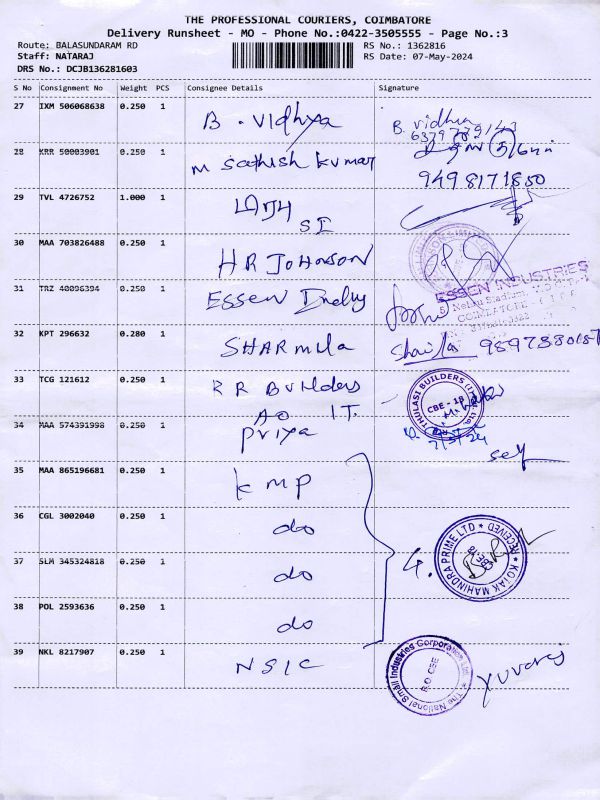 THE PROFESSIONAL COURIERS, COIMBATORE
Delivery Runsheet - MO - Phone No.:0422-3505555 - Page No.:3
Route: BALASUNDARAM RD RS No.: 1362816
Staff: NATARAJ RS Date: 07-May-2024
DRS No.: DCJB136281603
S No Consignment No Weight PCS Consignee Details Signature
27 IXM 506068638 0.250 1 B. Vidhya B. vidhya
28 KRR 50003901 0.250 1 M Sathish kumar
9498171850
29 TVL 4726752 1.000 1
SI
30 MAA 703826488 0.250 1 HR JOHNSON
31 TRZ 40096394 0.250 1 ESSEN ESSEN INDUSTRIES
COIMBATORE
32 KPT 296632 0.280 1 SHARMILA
33 TCG 121612 0.250 1 R R Builders THULASI BUILDERS (I) (P) Ltd. CBE - 18
AO IT.
34 MAA 574391998 0.250 1 Priya self
35 MAA 865196681 0.250 1 KMP
36 CGL 3002040 0.250 1 do
37 SLM 345324818 0.250 1 do 4. KOTAK MAHINDRA PRIME LTD RECEIVED
38 POL 2593636 0.250 1 do
39 NKL 8217907 0.250 1 NSIC The National Small Industries Corporation Ltd. B.O CBE Yuvaraj